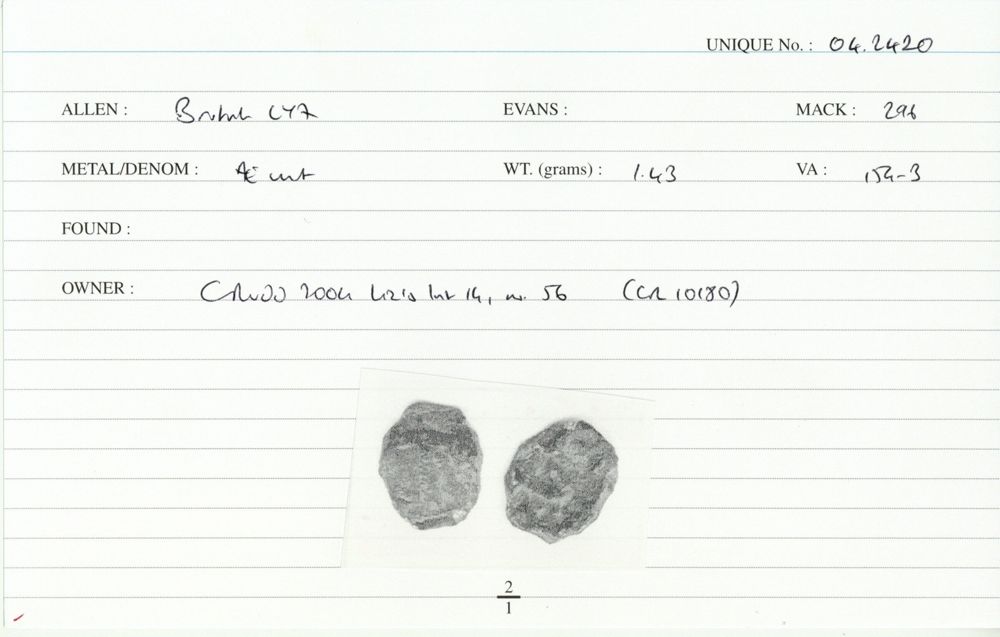 UNIQUE No. : 04.2420
ALLEN : British LY7 EVANS : MACK : 296
METAL/DENOM : Æ unit WT. (grams) : 1.43 VA : 154-3
FOUND :
OWNER : 2004 list 14, no. 56 (CR 10180)
2
1